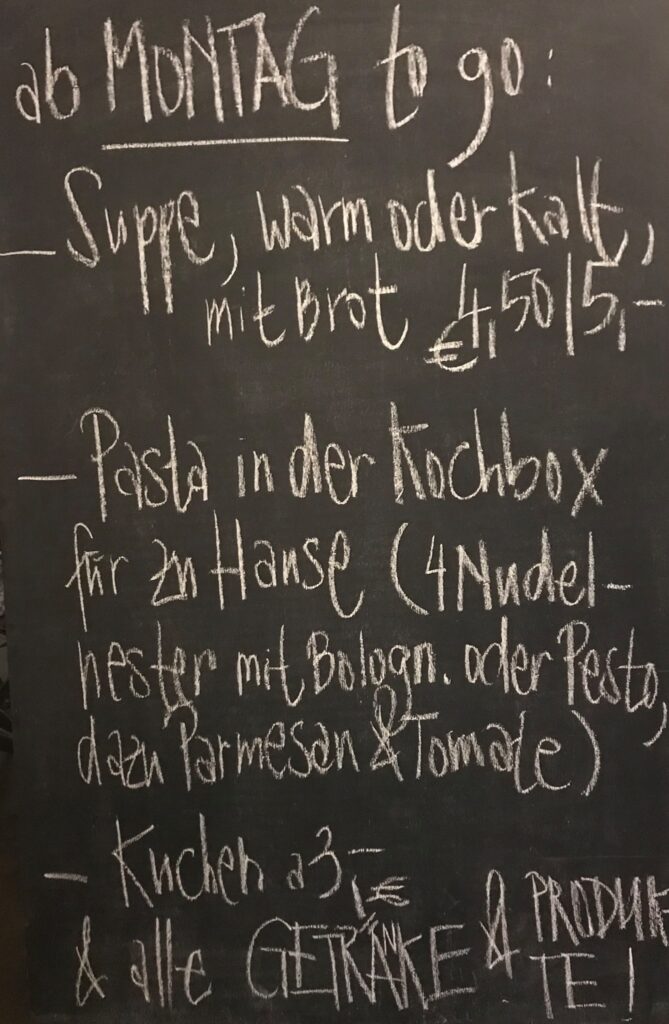 ab MONTAG to go:
– Suppe, warm oder kalt,
mit Brot €4,50/5,-
– Pasta in der Kochbox
für zu Hause (4 Nudel-
nester mit Bologn. oder Pesto,
dazu Parmesan & Tomate)
– Kuchen a 3,- €
& alle GETRÄNKE & PRODUK
TE!